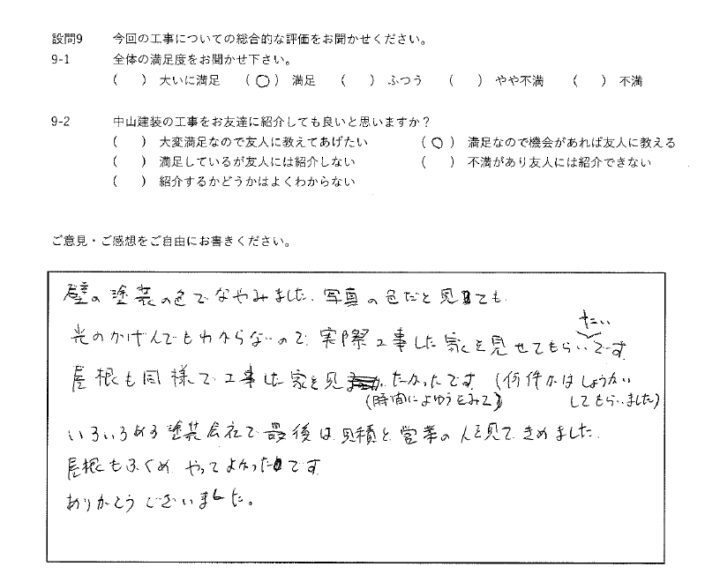 設問9 今回の工事についての総合的な評価をお聞かせください。
9-1 全体の満足度をお聞かせ下さい。
( ) 大いに満足 (○) 満足 ( ) ふつう ( ) やや不満 ( ) 不満
9-2 中山建装の工事をお友達に紹介しても良いと思いますか？
( ) 大変満足なので友人に教えてあげたい (○) 満足なので機会があれば友人に教える
( ) 満足しているが友人には紹介しない ( ) 不満があり友人には紹介できない
( ) 紹介するかどうかはよくわからない
ご意見・ご感想をご自由にお書きください。
壁の塗装の色でなやみました。写真の色だと見ても
光のかげんでもわからないので実際工事した家を見せてもらいたいです
屋根も同様で工事した家を見たかったです (何件かはしょうかいしてもらいました)
(時間によゆうをみて)
いろいろある塗装会社で最後は見積と営業の人を見てきめました。
屋根もふくめやってよかったです
ありがとうございました。